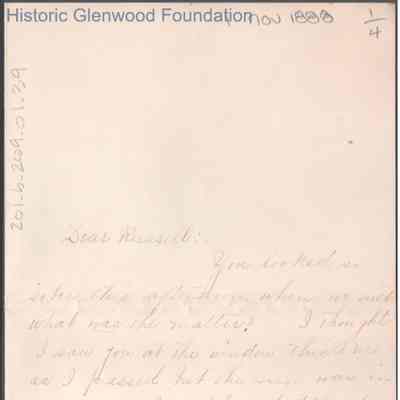 Historic Glenwood Foundation
1 Nov 1888
1/4
201-6-269-01.39
Dear Russell:
You looked so
this afternoon when we met
what was the matter? I thought
I saw you at the window
as I passed but the was in